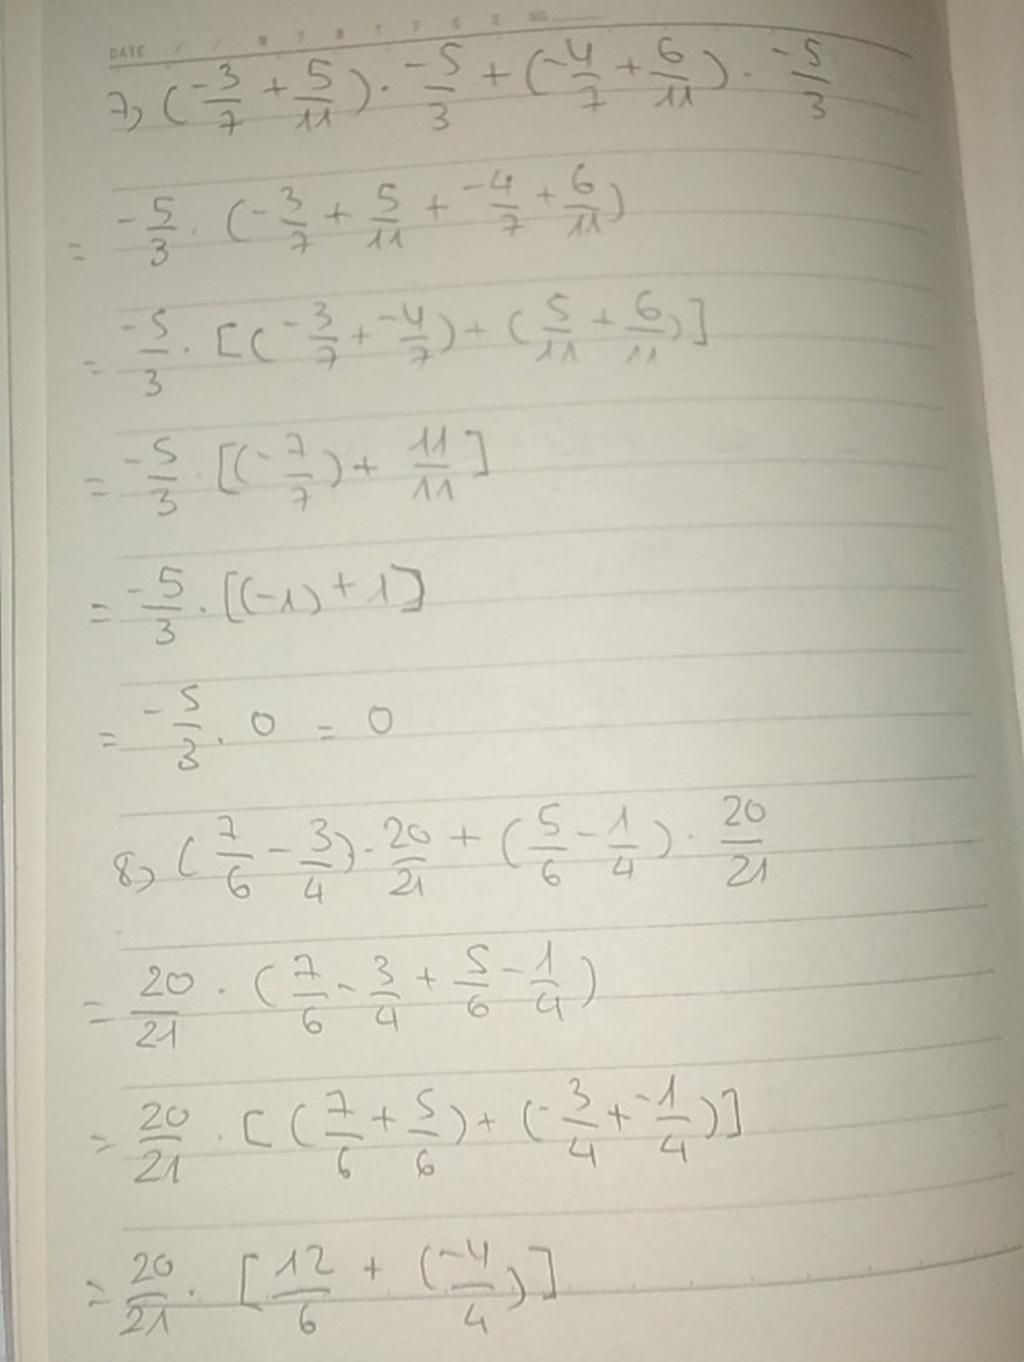 DATE / / M T W T F S S NO.
7) (-3/7 + 5/11) . -5/3 + (-4/7 + 6/11) . -5/3
= -5/3 . (-3/7 + 5/11 + -4/7 + 6/11)
= -5/3 . [(-3/7 + -4/7) + (5/11 + 6/11)]
= -5/3 . [(-7/7) + 11/11]
= -5/3 . [(-1) + 1]
= -5/3 . 0 = 0
8) (7/6 - 3/4) . 20/21 + (5/6 - 1/4) . 20/21
= 20/21 . (7/6 - 3/4 + 5/6 - 1/4)
= 20/21 . [(7/6 + 5/6) + (-3/4 + -1/4)]
= 20/21 . [12/6 + (-4/4)]